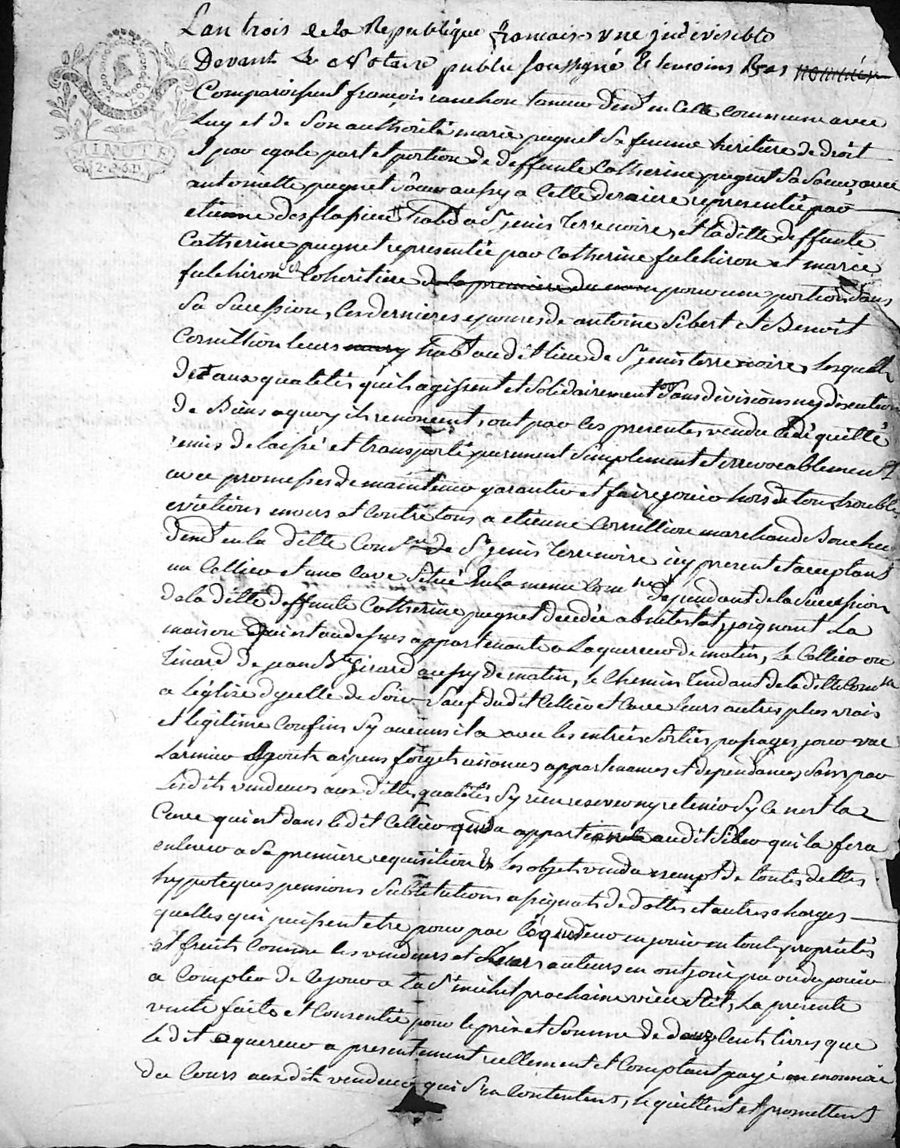 L'an trois de la Republique francaise une indivisible
Devant Le Notaire public soussigné & temoins Bas nommés
Comparoissent françois tanneur demt en cette commune avec
Luy et de son authorité marie pugnet sa femme heritiere de droit
& par egale part et portion de deffunte Catherine pugnet sa soeur avec
antoinette pugnet soeur aussy a cette derniere representée par
etienne habt a St genis terrenoire, et la ditte deffunte
Catherine pugnet representée par Catherine fulchiron et marie
fulchiron coheritiere de la premiere pour une portion dans
sa succession, ces dernieres epouses de antoine Sibert et Benoit
Cornillion leurs marys habt audit lieu de St genis terre noire, lesquells
dit aux qualités qu'ils agissent et solidairement sans division ny discution
de Biens a quoy ils renoncent, ont par ces presentes vendu cédé quitté
remis delaissé et transporté purement simplement et irrevocablement
avec promesses de maintenir garantir et faire jouir hors de tous troubles
evictions envers et contre tous a etienne Cornillion marchand Boucher
demt en la ditte Comne de St genis terrenoire icy present et acceptant
un Cellier et une Cave situé en la meme Comne dependant de la succession
de la ditte deffunte Catherine pugnet decedée abintestat, joignant La
maison qui est au dessus appartenante a L'aquereur de matin, le Cellier ou
Tinard de jean Bte Girard aussy de matin, le Chemin tendant de la ditte Comne
a l'église d'ycelle de Soir Sauf dudit Cellier et Cave leurs autres plus vrais
et legitime Confins s'y aucuns il a avec les entrées sorties passages jour vue
Larmier egouts aisances appartenances et dependances sans par
Lesdits vendeurs aux dittes qualités s'y rien reserver ny retenir s'y ce n'est la
Cuve qui est dans ledit Cellier qui a appartient audit Siber qui la fera
enlever a sa premiere requisition & les objets vendu exempt de toutes dettes
hypoteques pensions substitutions de dottes et autres charges
quelles qui puissent etre pour par l'aquereur en jouir en toute propriétés
et fruits Comme les vendeurs et Leurs auteurs en ont joui pu ou du jouir
a Compter de ce jour a la St michel prochaine La presente
vente faite et Consentie pour le prix et Somme de Cent livres que
ledit aquereur a presentement reellement et Comptant payé en monnoie
du Cours auxdits vendeurs qui s'en Contentent, le quittent et promettent